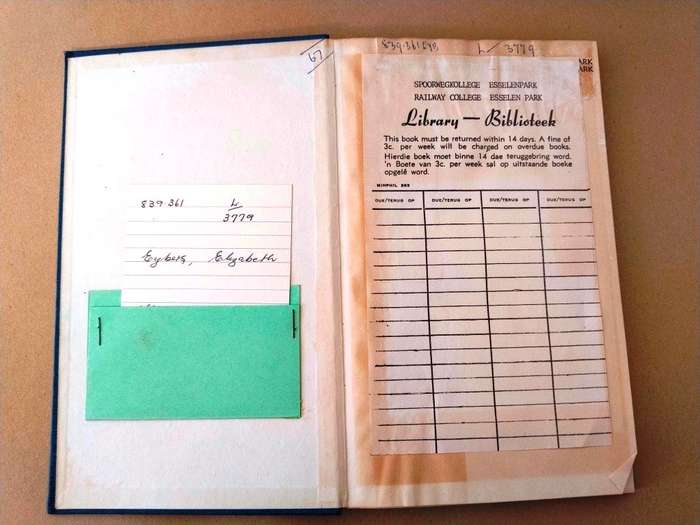 67
839 361 L
3779
Eybers, Elizabeth
L 3779
ARK
ARK
SPOORWEGKOLLEGE ESSELENPARK
RAILWAY COLLEGE ESSELEN PARK
Library — Biblioteek
This book must be returned within 14 days. A fine of
3c. per week will be charged on overdue books.
Hierdie boek moet binne 14 dae teruggebring word.
'n Boete van 3c. per week sal op uitstaande boeke
opgelê word.
MINPHIL 263
DUE/TERUG OP DUE/TERUG OP DUE/TERUG OP DUE/TERUG OP